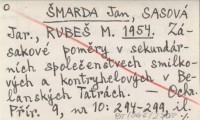 o ŠMARDA Jan, SASOVÁ
Jar., RUBEŠ M. 1954. Zá-
sakové poměry v sekundár-
ních společenstvech smilko-
vých a kontryhelových v Be-
lanských Tatrách. — Ocho.
Přír. 9, nr 10: 294-299, il.